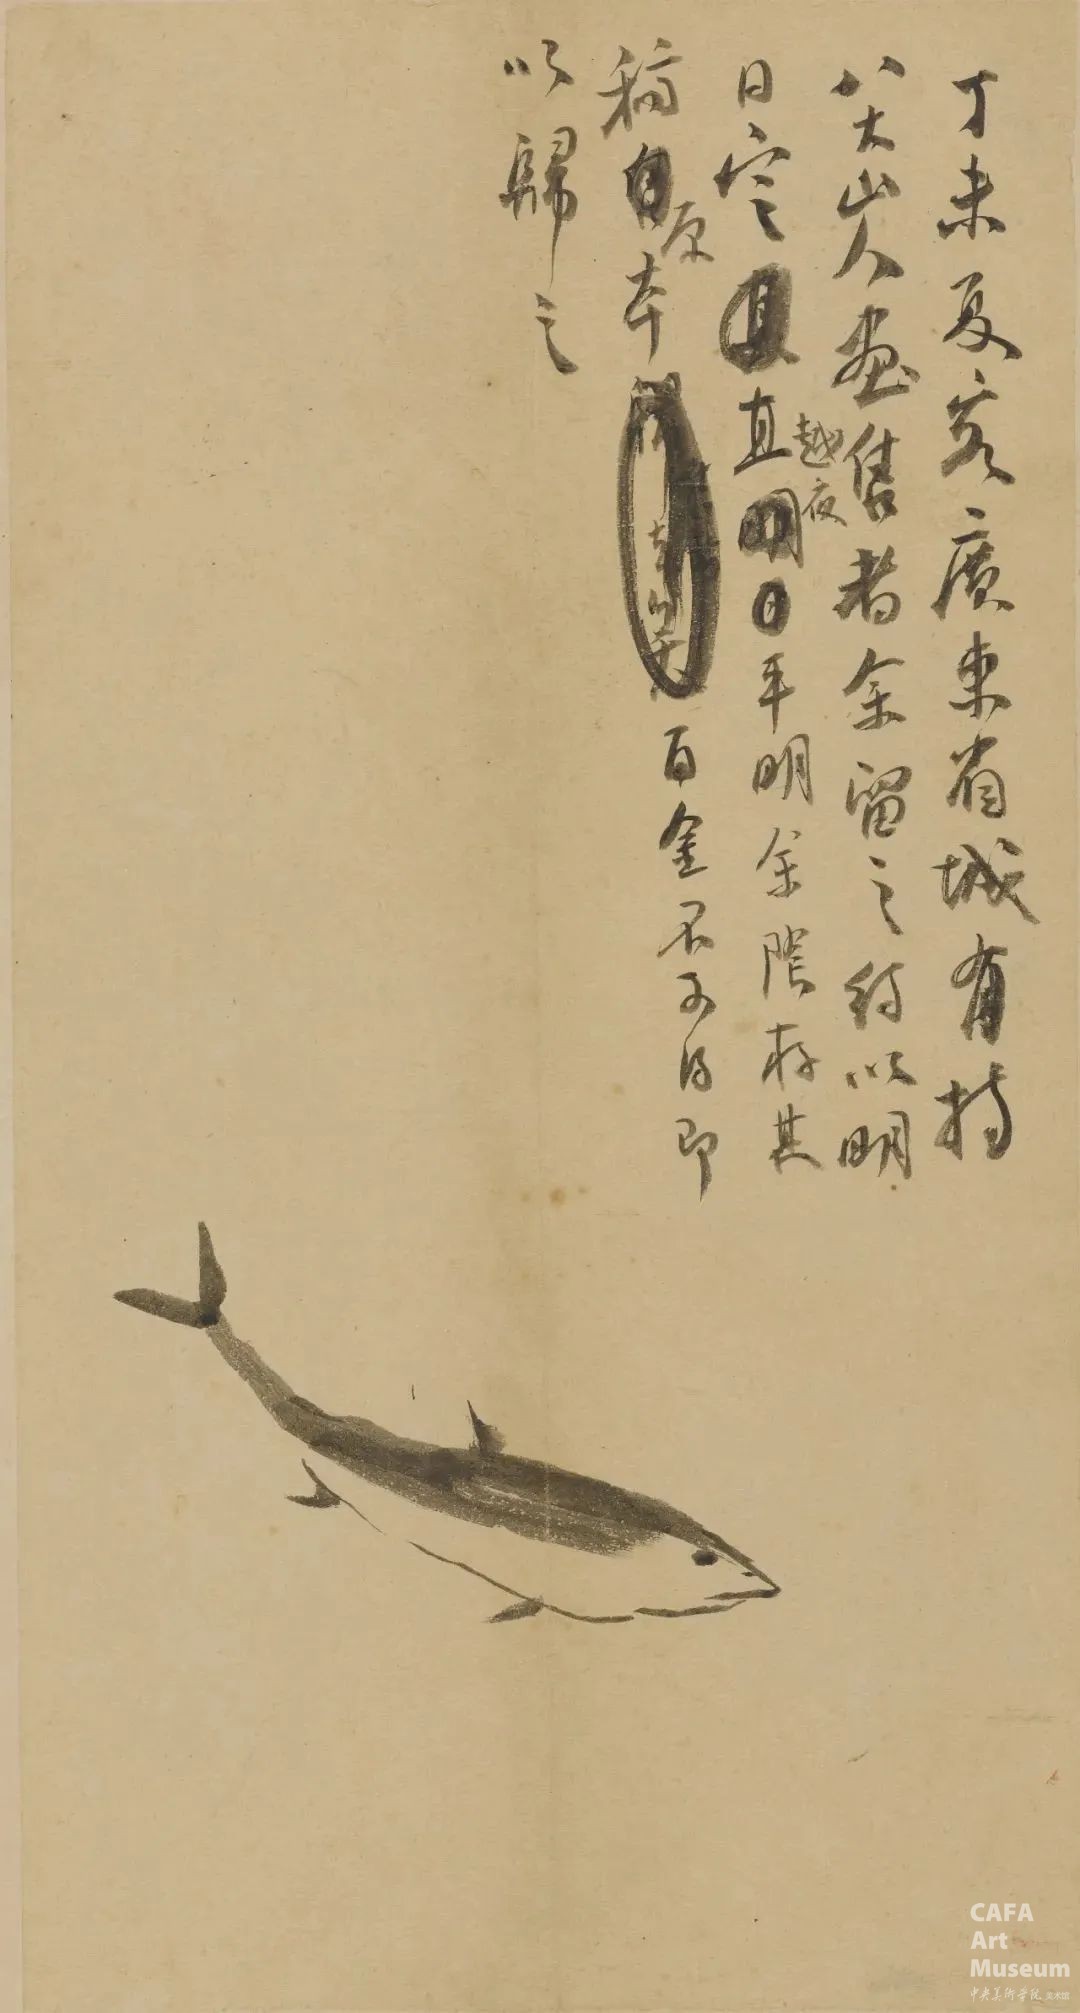 丁未夏客廣東省城有持
八大山人畫售者余留之約以明
日定直越夜平明余陰存其
稿原本百金不可得即
以歸之
CAFA
Art
Museum
中央美術學院 美术馆